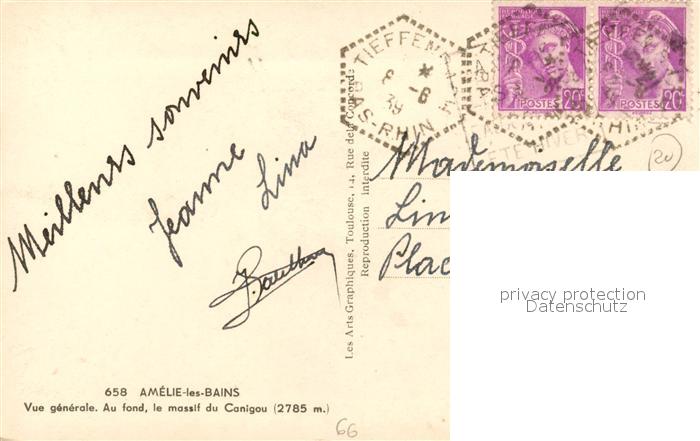 Meilleurs souvenirs
Jeanne Lina
658 AMÉLIE-les-BAINS
Vue générale. Au fond, le massif du Canigou (2785 m.)
66
Les Arts Graphiques, Toulouse, 14, Rue de la Concorde
Reproduction interdite
TIEFFEN
6 *
-6
39
BAS-RHIN
POSTES 20
POSTES 20
20
Mademoiselle
Lin
Plac
privacy protection
Datenschutz